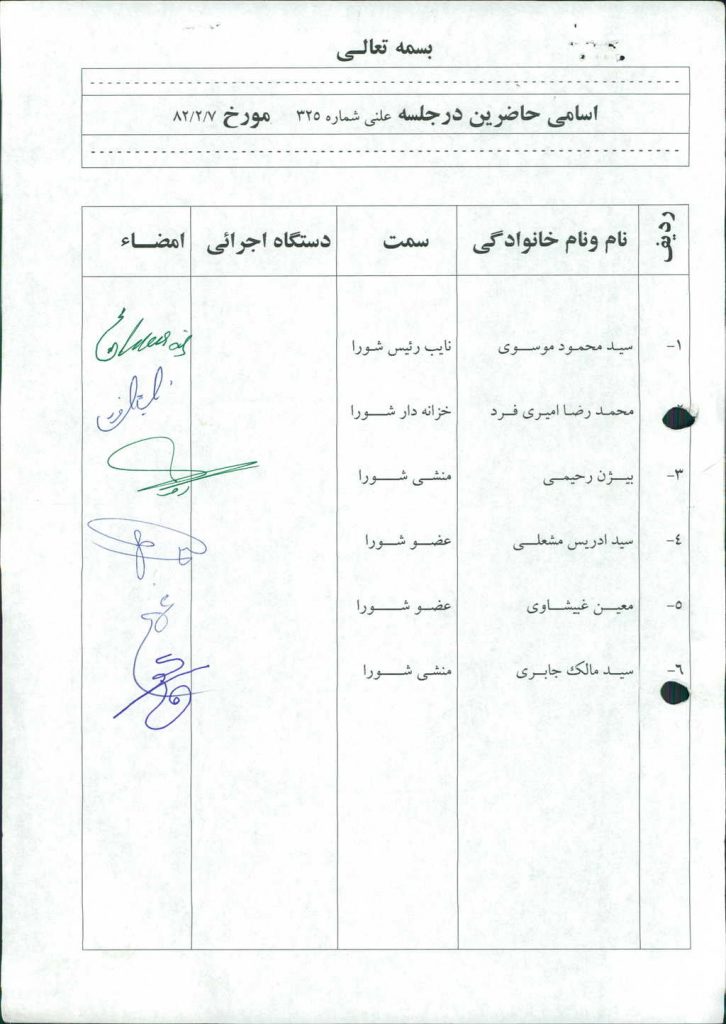 بسمه تعالـی
اسامی حاضرین درجلسه علنی شماره ۳۲۵ مورخ ۸۲/۲/۷
ردیف نام ونام خانوادگی سمت دستگاه اجرائی امضـــاء
۱- سید محمود موســوی نایب رئیس شورا
محمد رضا امیری فرد خزانه دار شــورا
۳- بیــژن رحیمـی منشی شــورا
٤- سید ادریس مشعلـی عضــو شــورا
۵- معیـن غبیشـاوی عضــو شــورا
٦- سیـد مالک جابـری منشی شــورا